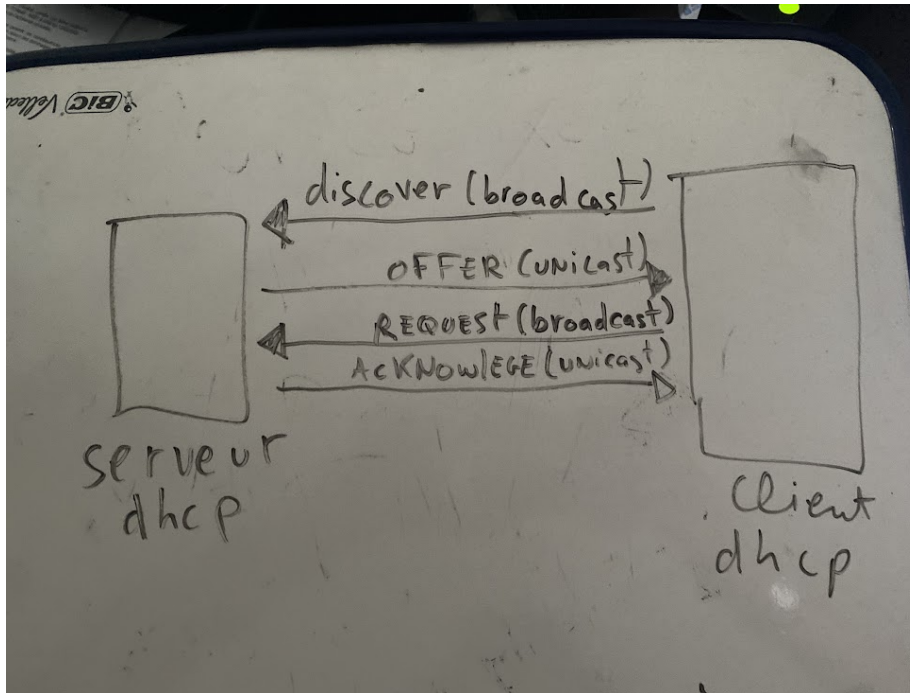 BIC Velleda
discover (broadcast)
OFFER (UNicast)
REQUEST (broadcast)
AcKNOWlEGE (UNicast)
serveur
dhcp
Client
dhcp